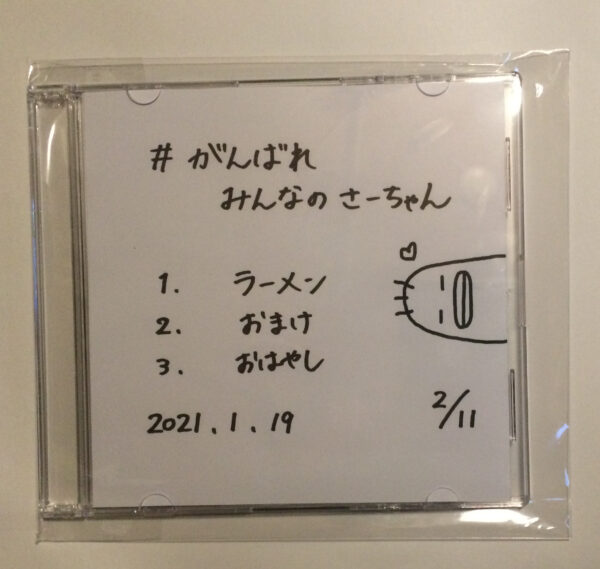 # がんばれ
みんなのさーちゃん
1. ラーメン
2. おまけ
3. おはやし
2021.1.19
2/11